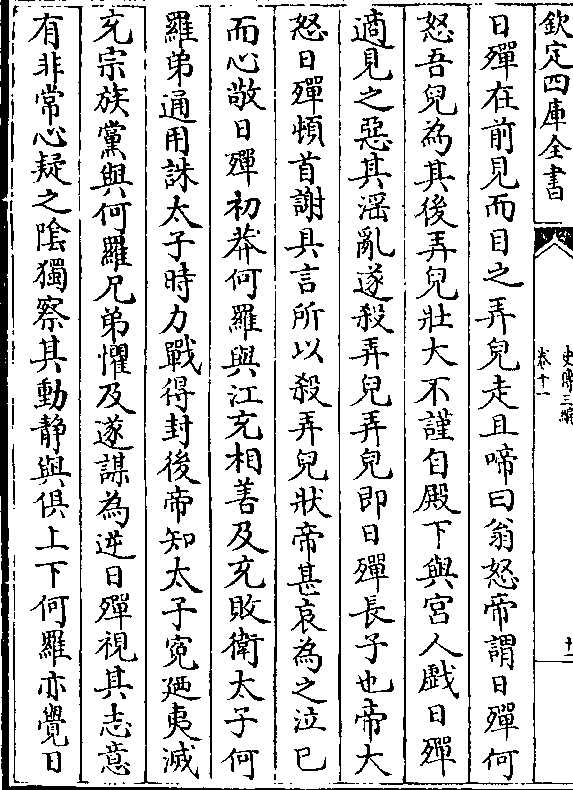 欽定四庫全書
史傳三編
卷十一
十二
日殫在前見而目之弄兒走且啼曰翁怒帝謂日殫何
怒吾兒為其後弄兒壯大不謹自殿下與宮人戲日殫
適見之惡其滛亂遂殺弄兒弄兒即日殫長子也帝大
怒日殫頓首謝具言所以殺弄兒狀帝甚哀為之泣已
而心敬日殫初莽何羅與江充相善及充敗衛太子何
羅弟通用誅太子時力戰得封後帝知太子寃廼夷滅
充宗族黨與何羅兄弟懼及遂謀為逆日殫視其志意
有非常心疑之隂獨察其動静與俱上下何羅亦覺日